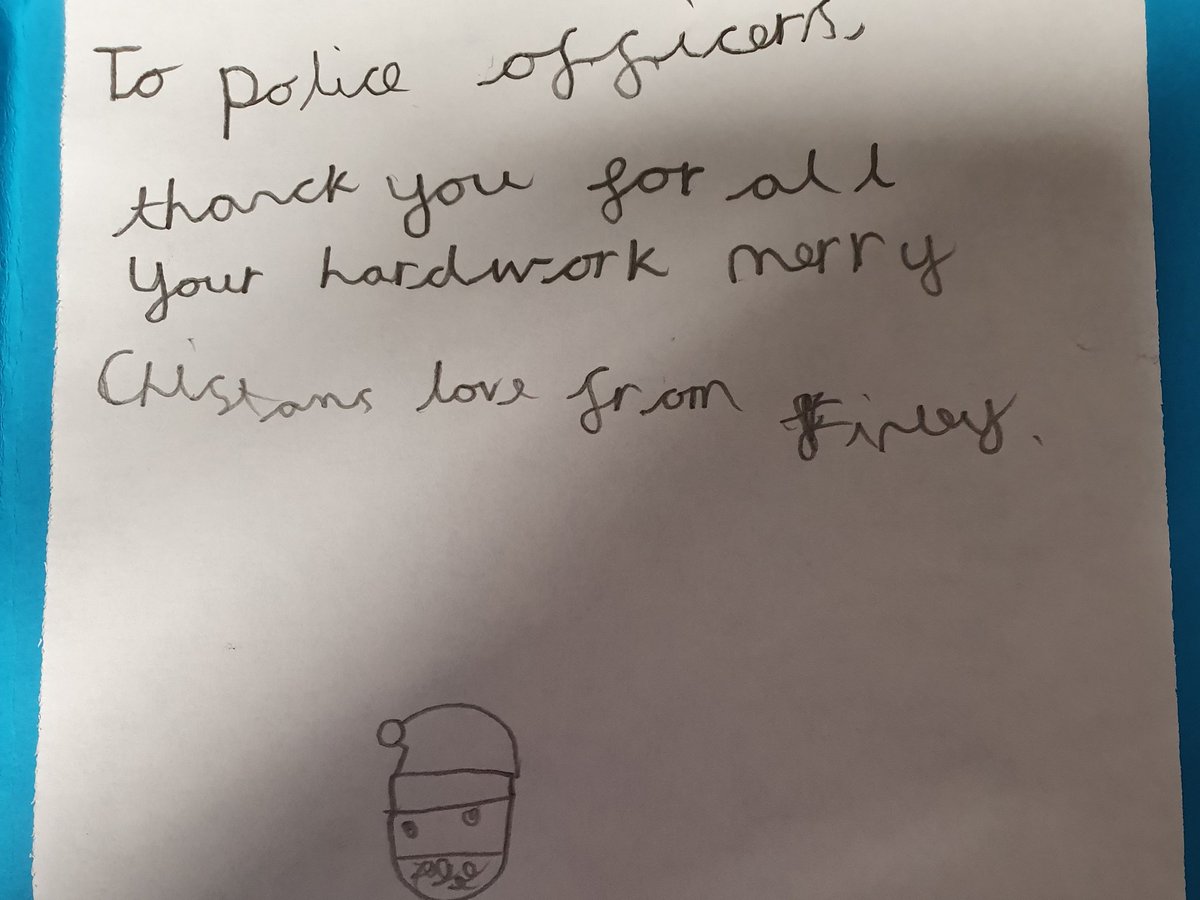 To police officers,
thanck you for all
your hardwork merry
Chistans love from Finley.